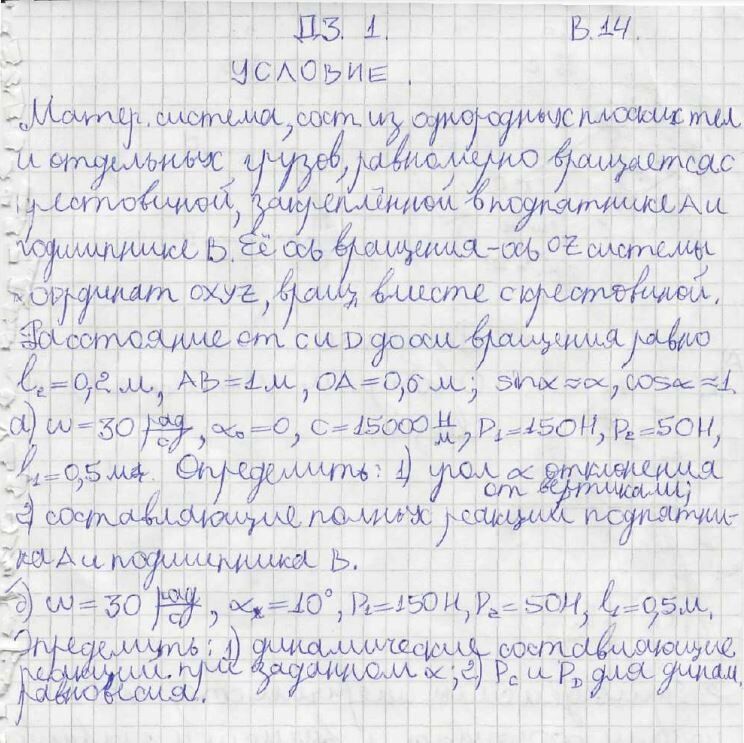 Д.З. 1. В.14.
УСЛОВИЕ.
Матер. система, сост. из однородных плоских тел
и отдельных грузов, равномерно вращается с
рестовиной, закреплённой в подпятнике А и
подшипнике В. Её ось вращения - ось OZ системы
координат OXYZ, вращ. вместе с крестовиной.
Расстояние от С и D до оси вращения равно
l₂=0,2 м, AB=1 м, OA=0,6 м; sinα≈α, cosα≈1.
а) ω=30 рад/с, α₀=0, C=15000 Н/м, P₁=150Н, P₂=50Н,
l₁=0,5 м. Определить: 1) угол α отклонения
от вертикали;
2) составляющие полных реакций подпятни-
ка А и подшипника В.
б) ω=30 рад/с, αₓ=10°, P₁=150Н, P₂=50Н, l₁=0,5м.
Определить: 1) динамические составляющие
реакций при заданном α; 2) P_C и P_D для динам.
равновесия.